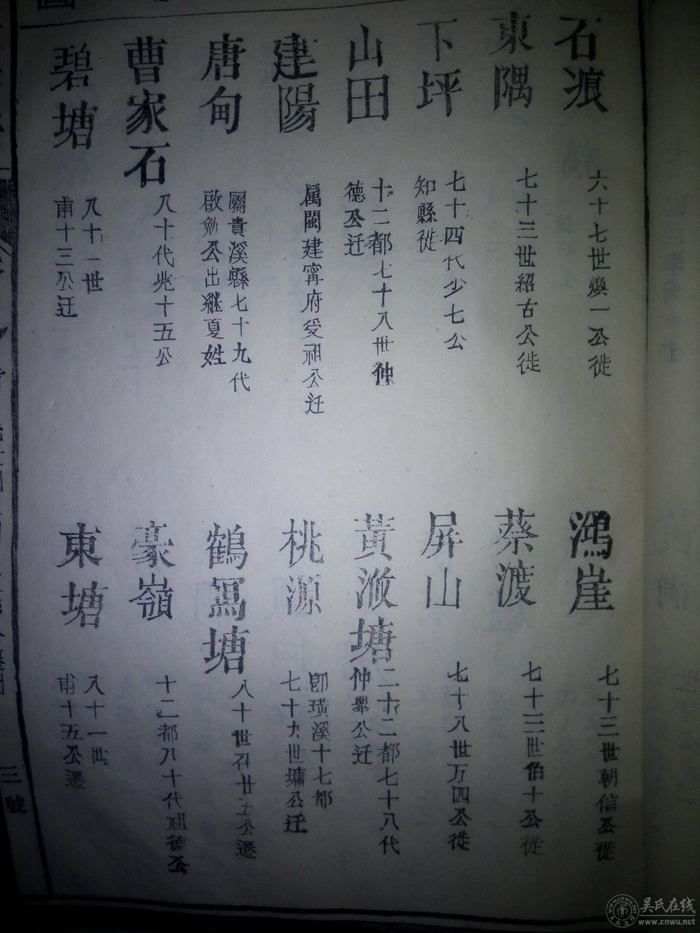 石痕
六十七世煥一公徙
鴻崖
七十三世朝信公徙
東隅
七十三世紹古公徙
蔡渡
七十三世伯十公徙
下坪
七十四代少七公
知縣徙
屏山
七十八世万四公徙
山田
十二都七十八世仲
德公迁
黃潊塘
二十二都七十八代
仲舉公迁
建陽
属閩建寧府爱祖公迁
桃源
即璜溪十七都
七十九世墉公迁
唐甸
屬貴溪縣七十九代
啟勉公出継夏姓
鶴寫塘
八十世召廿五公遷
曹家石
八十代兆十五公
豪嶺
十二都八十代祖德公
碧塘
八十一世
甫十三公迁
東塘
八十一世
甫十五公遷
三號
吴氏在线
www.cnwu.net